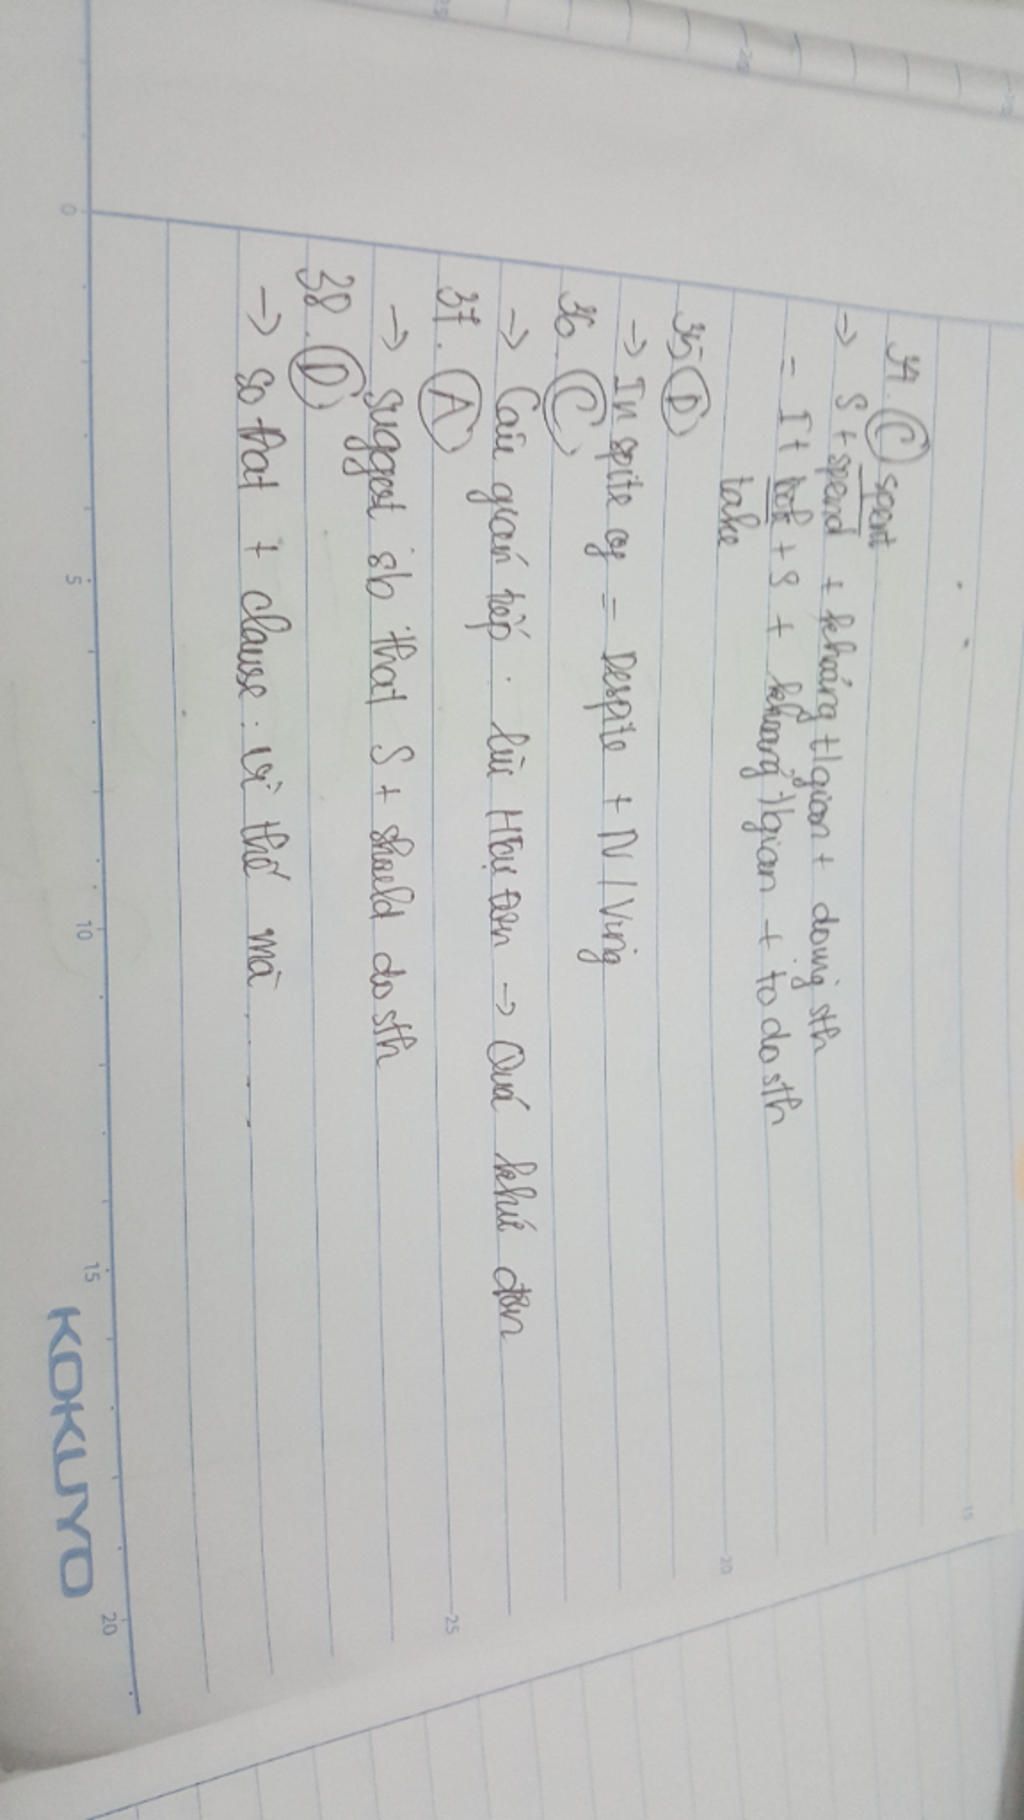 34. C spent
→ S + spend + khoảng t/gian + doing sth
= It took + S + khoảng t/gian + to do sth
take
35 D
→ In spite of = Despite + N / Ving
36. C
→ Câu gián tiếp : lùi HTại đơn → Quá khứ đơn
37. A
→ suggest sb that S + should do sth
38. D
→ so that + clause : vì thế mà .....
KOKUYO
0
5
10
15
20
15
20
25